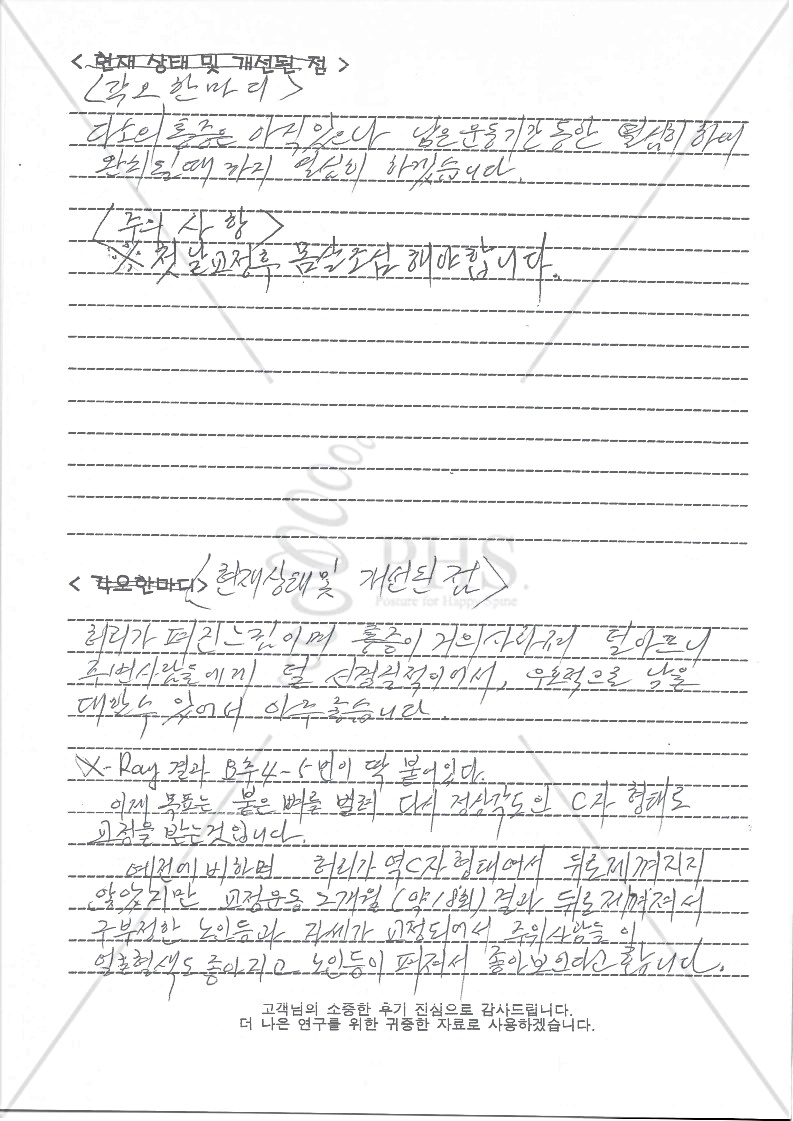 < 현재 상태 및 개선된 점 >
<각오 한마디>
다소의 통증은 아직있으나 남은운동기간동안 열심히하여
완치될때 까지 열심히 하겠습니다.
<주의 사항>
※ 첫날교정후 몸살조심 해야합니다.
PHS.
Posture for Happy Spine
< 각오한마디> <현재상태및 개선된 점>
허리가 펴진느낌이며 통증이 거의사라져 덜아프니
주변사람들에게 덜 신경질적이어서, 우호적으로 남을
대할수 있어서 아주좋습니다.
X-Ray 결과 요추4-5번이 딱 붙어있다.
이제 목표는 붙은뼈를 벌려 다시 정상각도인 C자 형태로
교정을 받는것입니다.
예전에비하면 허리가 역C자형태여서 뒤로제껴지지
않았지만 교정운동 2개월(약18회)결과 뒤로제껴져서
구부정한 노인등과 자세가 교정되어서 주위사람들이
얼굴혈색도좋아지고 노인등이 펴져서 좋아보인다고합니다.
고객님의 소중한 후기 진심으로 감사드립니다.
더 나은 연구를 위한 귀중한 자료로 사용하겠습니다.